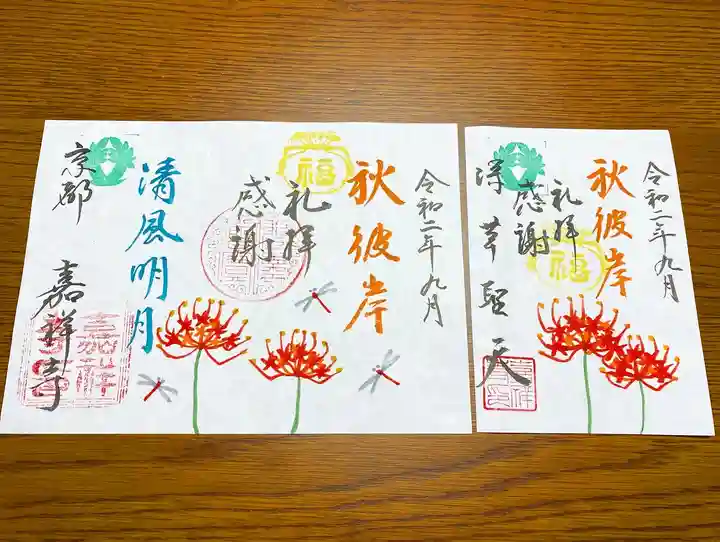 令和二年九月
秋彼岸
福
礼拝
感謝
清風明月
京都 嘉祥寺
令和二年九月
秋彼岸
福
礼拝
感謝
深草聖天